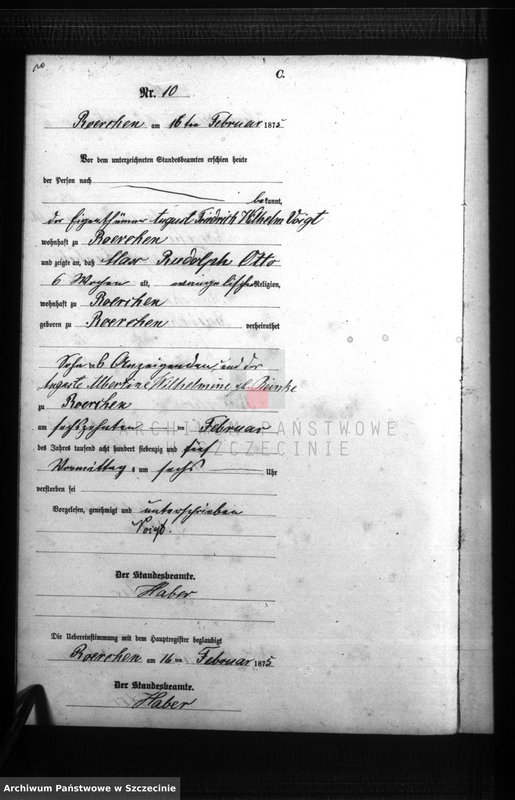 C.
Nr. 10
Roerchen am 16ten Februar 1875
Vor dem unterzeichneten Standesbeamten erschien heute
der Person nach
bekannt,
der Eigenthümer August Friedrich Wilhelm Voigt
wohnhaft zu Roerchen
und zeigte an, daß Max Rudolph Otto
6 Wochen alt, evangelischer Religion,
wohnhaft zu Roerchen
geboren zu Roerchen verheirathet
Sohn des Anzeigenden und der
Auguste Albertine Wilhelmine geb.
zu Roerchen
am sechszehnten ten Februar
des Jahres tausend acht hundert siebenzig und fünf
Vormittags um sechs Uhr
verstorben sei
Vorgelesen, genehmigt und unterschrieben
Voigt.
Der Standesbeamte.
Haber
Die Uebereinstimmung mit dem Hauptregister beglaubigt
Roerchen am 16 ten Februar 1875
Der Standesbeamte.
Haber
ARCHIWUM PAŃSTWOWE
W SZCZECINIE
Archiwum Państwowe w Szczecinie